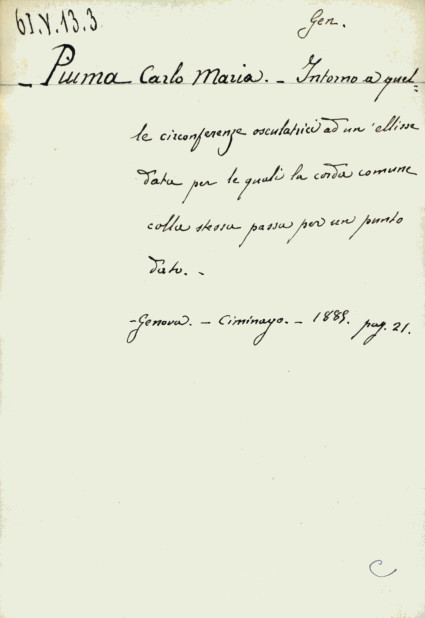 61.V.13.3
Gen.
Piuma Carlo Maria. - Intorno a quel=
le circonferenze osculatrici ad un'ellisse
data per le quali la corda comune
colla stessa passa per un punto
dato. -
- Genova. - Ciminago. - 1885. pag. 21.
C